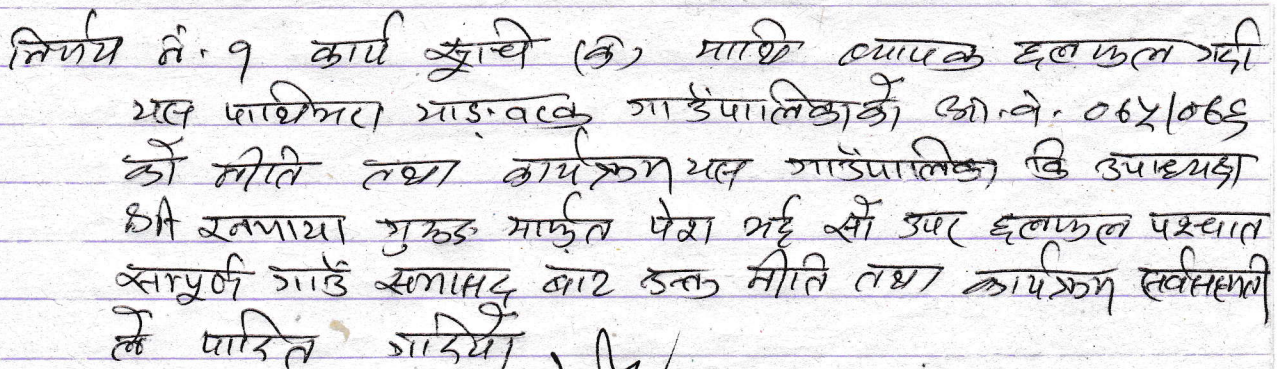 निर्णय नं. १ कार्य सूची (क) माथि व्यापक छलफल गर्दा
यस पाथिभरा याङवरक गाउँपालिकाको आ.व. ०७५/०७६
को नीति तथा कार्यक्रम यस गाउँपालिका कि उपाध्यक्ष
श्री रनमाया गुरुङ मार्फत पेश भई सो उपर छलफल पश्चात
सम्पूर्ण गाउँ सभासद बाट उक्त नीति तथा कार्यक्रम सर्वसहमती
ले पारित गरियो